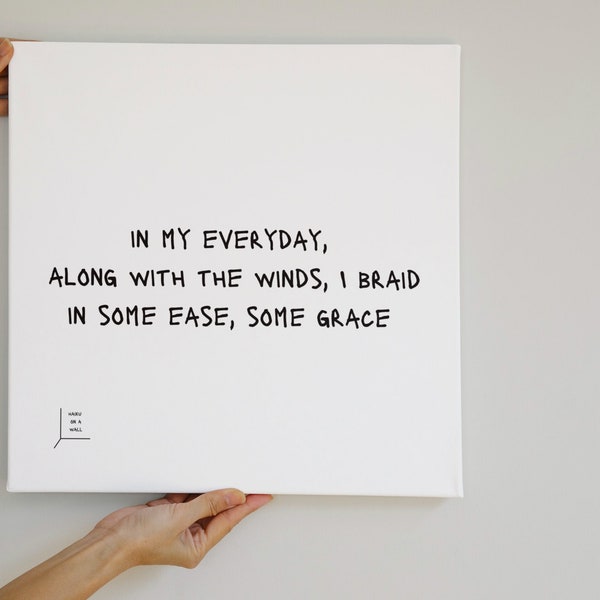 IN MY EVERYDAY,
ALONG WITH THE WINDS, I BRAID
IN SOME EASE, SOME GRACE
HAIKU
ON A
WALL